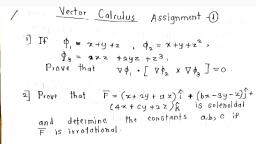 Vector Calculus Assignment - ①
1] If φ₁ = x+y+z , φ₂ = x+y+z² ,
φ₃ = 2xz +2yz +z³ ,
Prove that ∇φ₁ · [ ∇φ₂ × ∇φ₃ ] = 0 .
2] Prove that F̄ = (x+2y+az)î + (bx-3y-z)ĵ +
(4x+cy+2z)k̂ is solenoidal
and determine the constants a,b,c if
F̄ is irrotational.